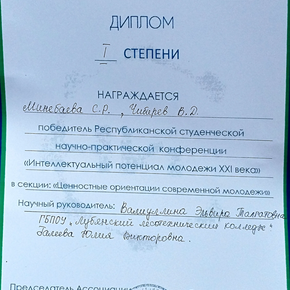 ДИПЛОМ
I СТЕПЕНИ
НАГРАЖДАЕТСЯ
Минебаева С.Р., Чибарев В.Д.
победитель Республиканской студенческой
научно-практической конференции
«Интеллектуальный потенциал молодежи XXI века»
в секции: «Ценностные ориентации современной молодежи»
Научный руководитель: Валиуллина Эльвира Талгатовна
ГБПОУ „Лубянский лесотехнический колледж"
Галеева Юлия Викторовна.
Председатель Ассоциации